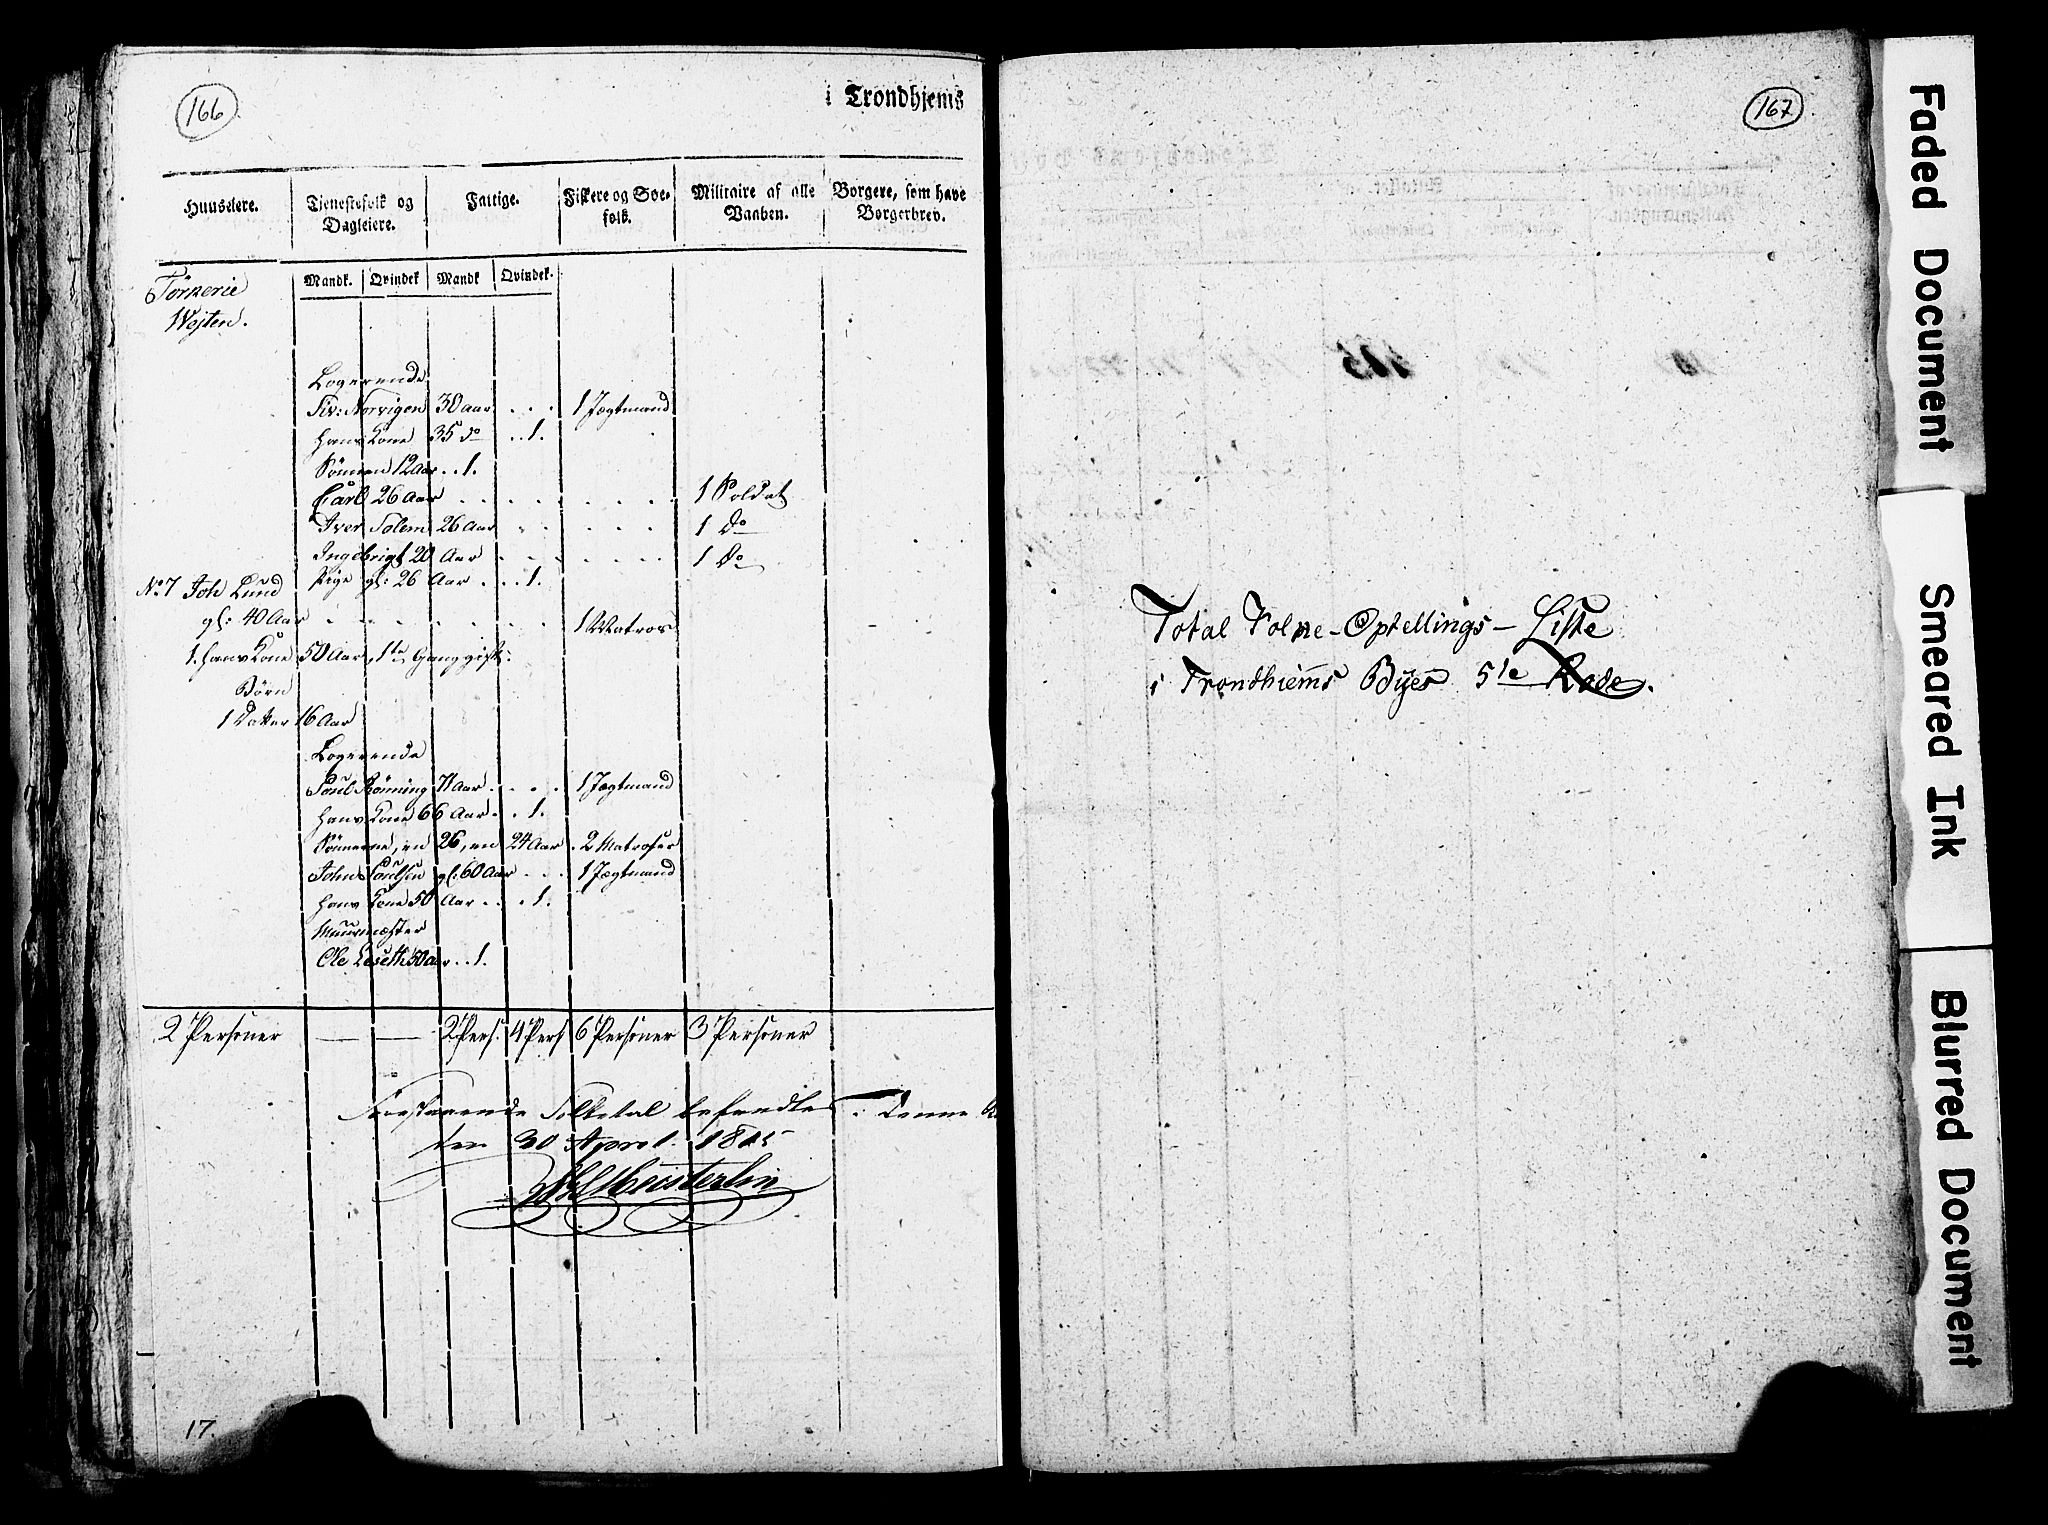 166
i Trondhjems
Huuseiere. Tjenestefolk og Dagleiere. Fattige. Fiskere og Søefolk. Militaire af alle Vaaben. Borgere, som have Borgerbrev.
Mandk. Qvindek Mandk Qvindek.
Wejten.
Logerende
Siv: Norvigen 30 Aar . . . 1 Jægtmand
hans Kone 35 do . . 1.
Sönnen 12 Aar . . 1.
Carl 26 Aar . . . . . . 1 Soldat
Iver Solem 26 Aar . . . . . 1 Do
Ingebrigt 20 Aar . . . . . . 1 Do
No 7 Joh Lund Pige gl: 26 Aar . . . 1.
gl: 40 Aar . . . . . . 1 Matros
1. hans Kone 50 Aar, 1te Gang gift.
Börn
1 Datter 16 Aar
Logerende
Poul Rönning 71 Aar . . . . 1 Jægtmand
hans Kone 66 Aar . . 1.
Sönnerne, en 26, en 24 Aar . 2 Matroser
John Poulsen gl: 60 Aar . . . 1 Jægtmand
hans Kone 50 Aar . . . 1.
Muurmæster
Ole Leseth 50 Aar . . 1.
2 Personer — — 2 Pers. 4 Pers 6 Personer 3 Personer
Forestaaende Folketal befandtes i denne
den 30 April 1815
Meisterlin
17.
167
Total Folke-Optellings-Liste
i Trondhiems Byes 5te Rode.
Faded Document
Smeared Ink
Blurred Document